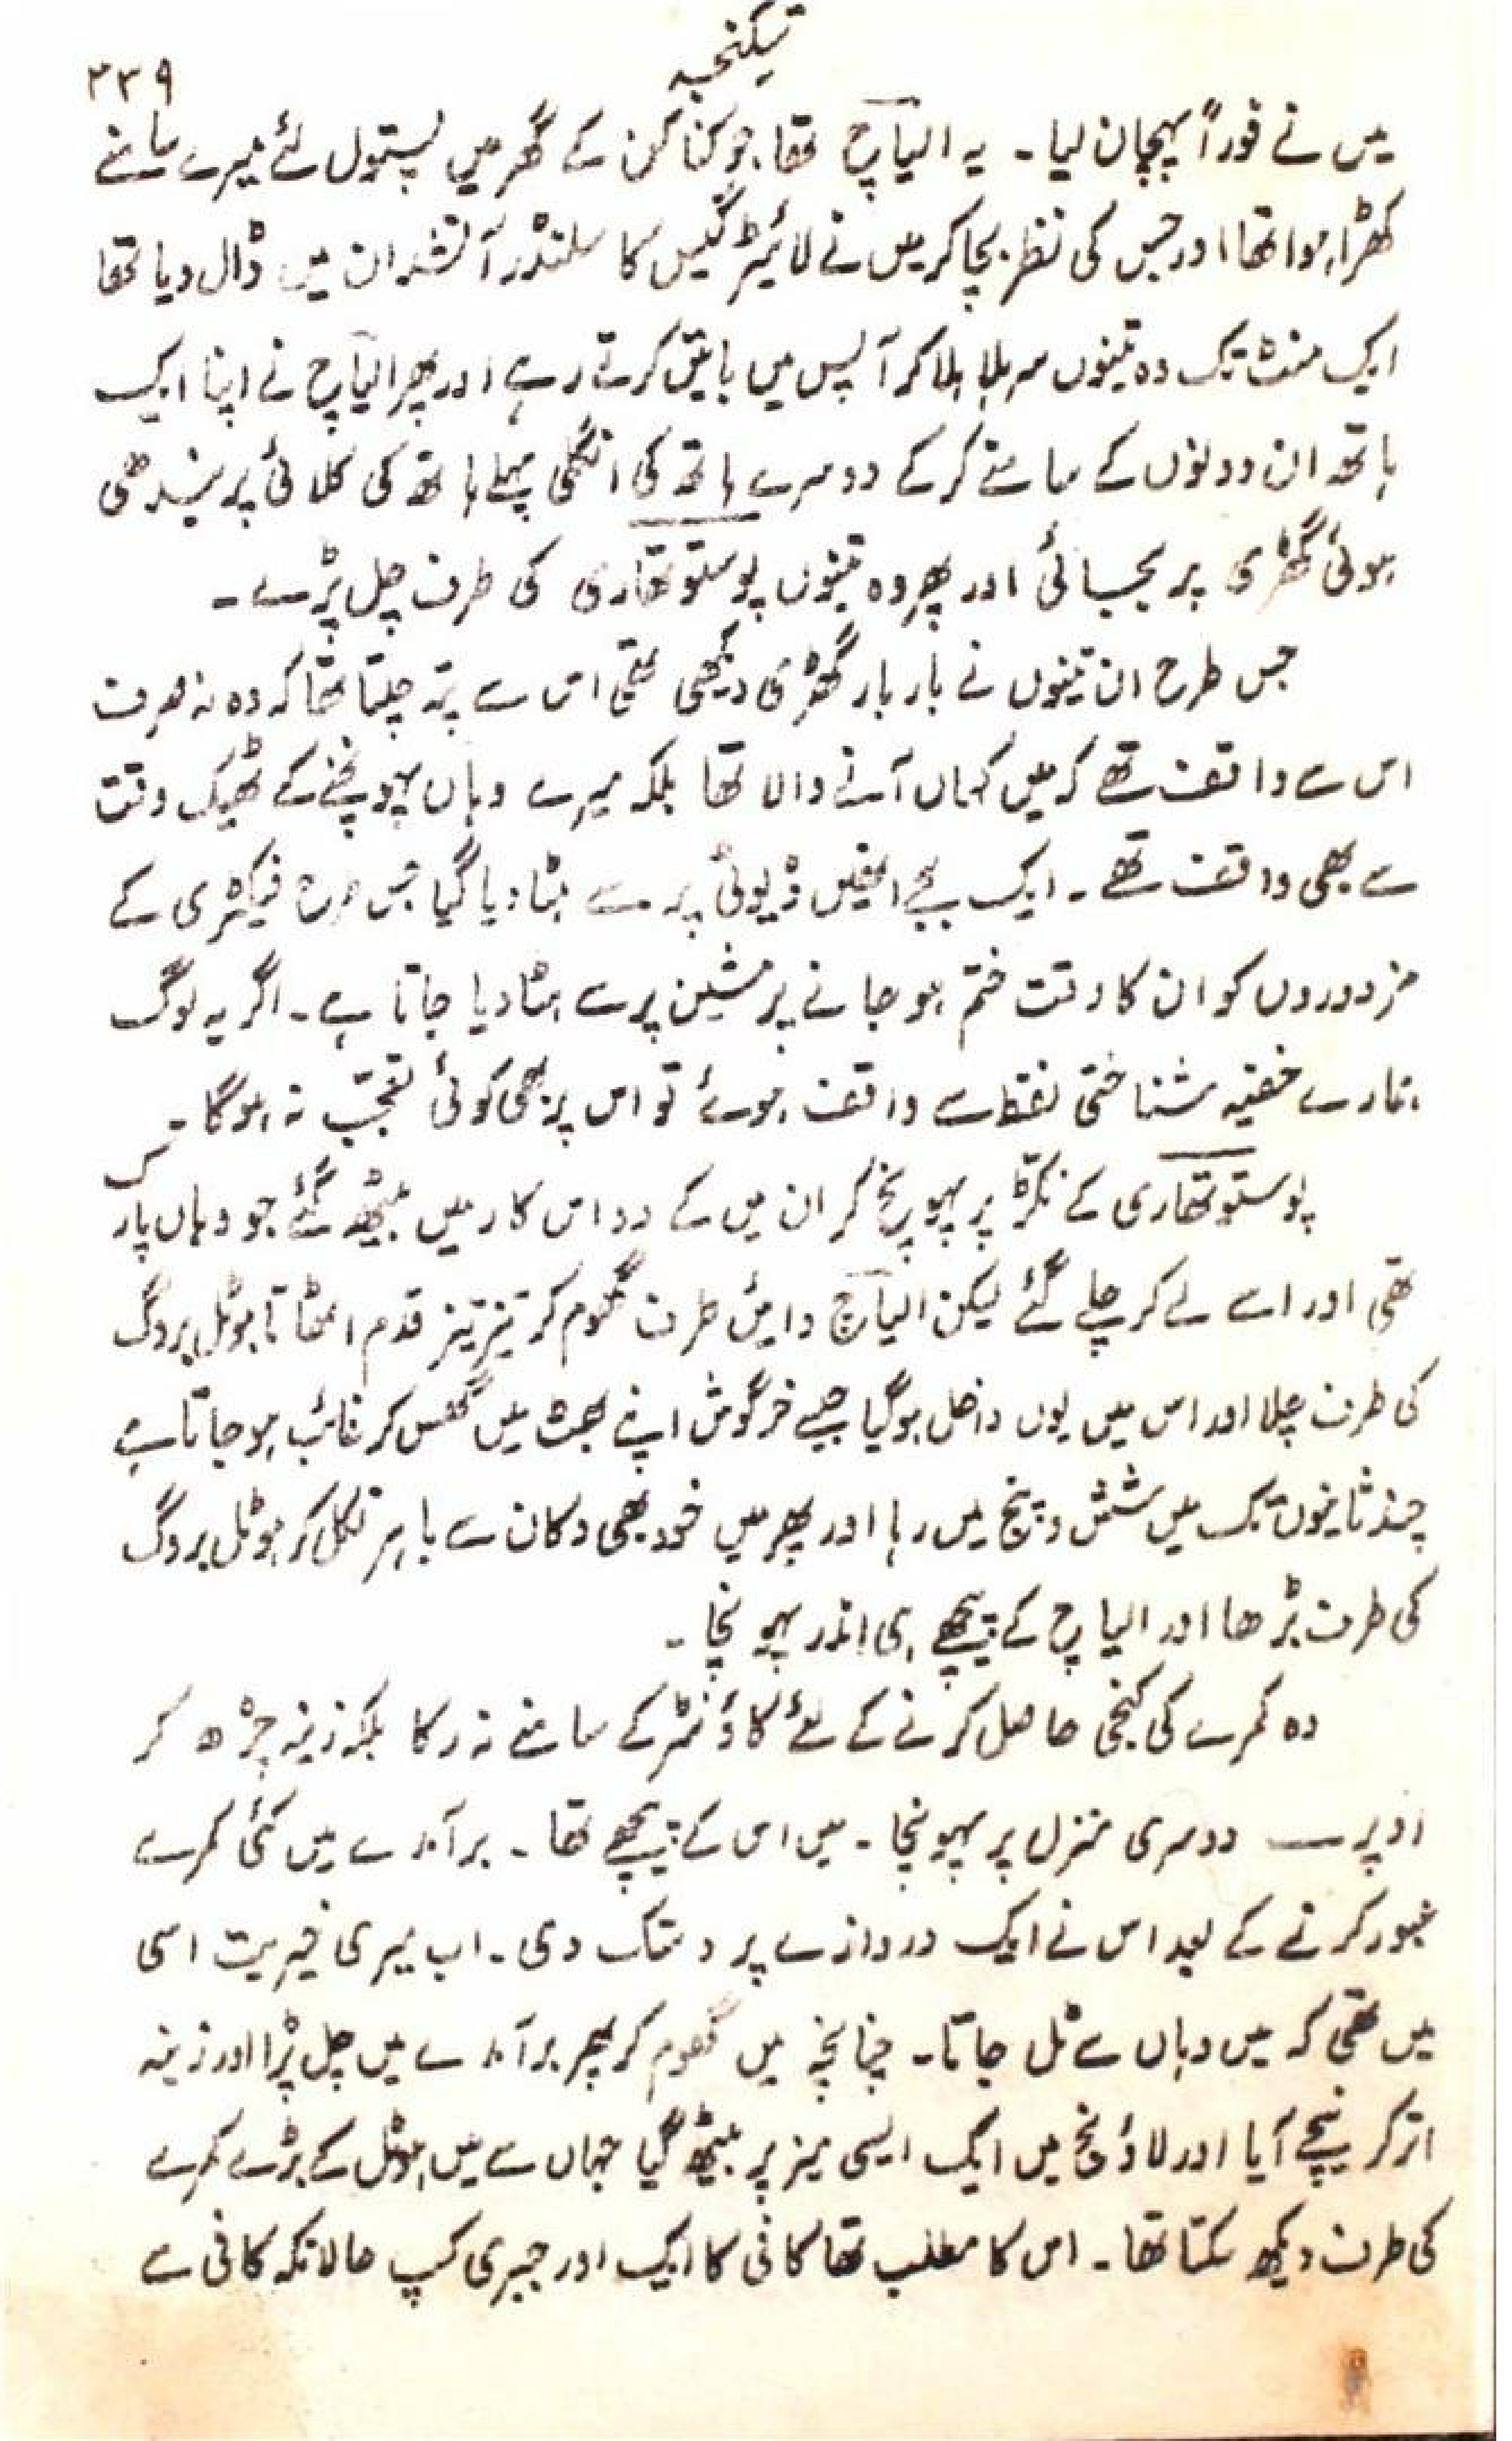 شکنجہ
۳۳۹
میں نے فوراً پہچان لیا۔ یہ الیآرچ تھا جو کناکن کے گھر میں پستول لئے میرے سامنے
کھڑا ہوا تھا اور جس کی نظر بچا کر میں نے لائیٹر گیس کا سلنڈر آتشدان میں ڈال دیا تھا
ایک منٹ تک وہ تینوں سر ہلا ہلا کر آپس میں باتیں کرتے رہے اور پھر الیآرچ نے اپنا ایک
ہاتھ ان دونوں کے سامنے کر کے دوسرے ہاتھ کی انگلی پہلے ہاتھ کی کلائی پر بندھی
ہوئی گھڑی پر بجائی اور پھر وہ تینوں پوستوتھاری کی طرف چل پڑے۔
جس طرح ان تینوں نے بار بار گھڑی دیکھی تھی اس سے پتہ چلتا تھا کہ وہ نہ صرف
اس سے واقف تھے کہ میں کہاں آنے والا تھا بلکہ میرے وہاں پہونچنے کے ٹھیک وقت
سے بھی واقف تھے۔ ایک بجے انھیں ڈیوٹی پر سے ہٹا دیا گیا جس طرح فیکٹری کے
مزدوروں کو ان کا وقت ختم ہو جانے پر مشین پر سے ہٹا دیا جاتا ہے۔ اگر یہ لوگ
ہمارے خفیہ شناختی نقطا سے واقف ہوئے تو اس پر بھی کوئی تعجب نہ ہوگا۔
پوستوتھاری کے نکڑ پر پہونچ کر ان میں کے دو اس کار میں بیٹھ گئے جو وہاں پارک
تھی اور اسے لے کر چلے گئے لیکن الیآرچ دائیں طرف گھوم کر تیز تیز قدم اٹھاتا ہوٹل بردگ
کی طرف چلا اور اس میں یوں داخل ہو گیا جیسے خرگوش اپنے بھٹ میں گھس کر غائب ہو جاتا ہے
چند ثانیوں تک میں شش و پنج میں رہا اور پھر میں خود بھی دکان سے باہر نکل کر ہوٹل بردگ
کی طرف بڑھا اور الیارچ کے پیچھے ہی اندر پہونچا۔
وہ کمرے کی کنجی حاصل کرنے کے لئے کاؤنٹر کے سامنے نہ رکا بلکہ زینہ چڑھ کر
اوپر دوسری منزل پر پہونچا۔ میں اس کے پیچھے تھا۔ برآمدے میں کئی کمرے
عبور کرنے کے بعد اس نے ایک دروازے پر دستک دی۔ اب میری خیریت اسی
میں تھی کہ میں وہاں سے ٹل جاتا۔ چنانچہ میں گھوم کر پھر برآمدے میں چل پڑا اور زینہ
اتر کر نیچے آیا اور لاؤنج میں ایک ایسی میز پر بیٹھ گیا جہاں سے میں ہوٹل کے بڑے کمرے
کی طرف دیکھ سکتا تھا۔ اس کا مطلب تھا کافی کا ایک اور جبری کپ حالانکہ کافی سے